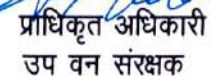 प्राधिकृत अधिकारी
उप वन संरक्षक